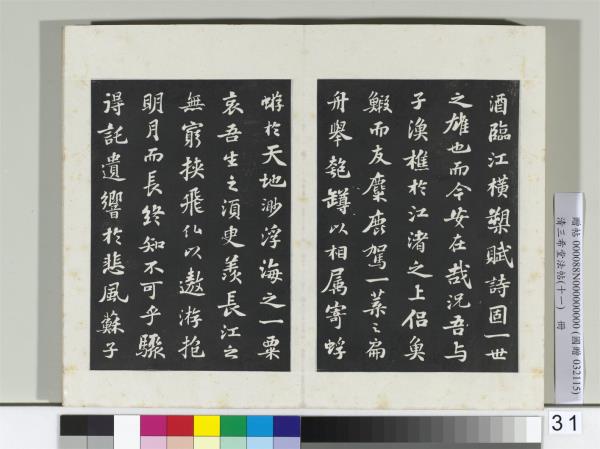 酒臨江橫槊賦詩固一世
之雄也而今安在哉況吾与
子漁樵於江渚之上侣魚
鰕而友麋鹿駕一葉之扁
舟舉匏罇以相属寄蜉
蝣於天地渺浮海之一粟
哀吾生之須臾羨長江之
無窮挾飛仙以遨游抱
明月而長終知不可乎驟
得託遺響於悲風蘇子
贈帖 000088N000000000 (國贈 032115)
清三希堂法帖(十一) 冊
31